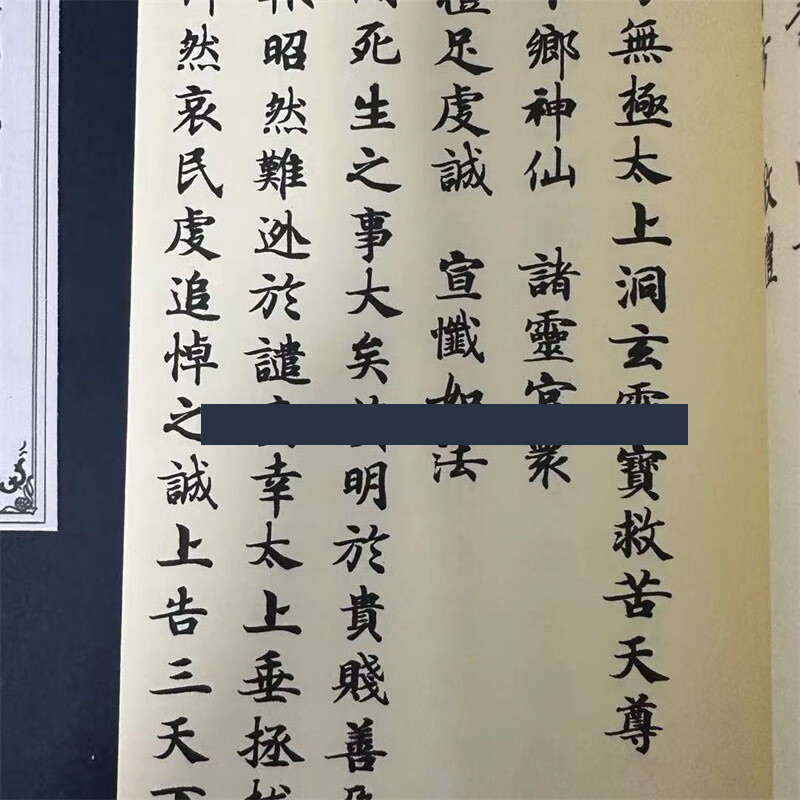 無極太上洞玄靈寶救苦天尊
鄉神仙 諸靈官眾
足虔誠 宣懺如法
死生之事大矣 明於貴賤善
昭然難逃於譴 幸太上垂拯
然哀民虔追悼之誠上告三天下